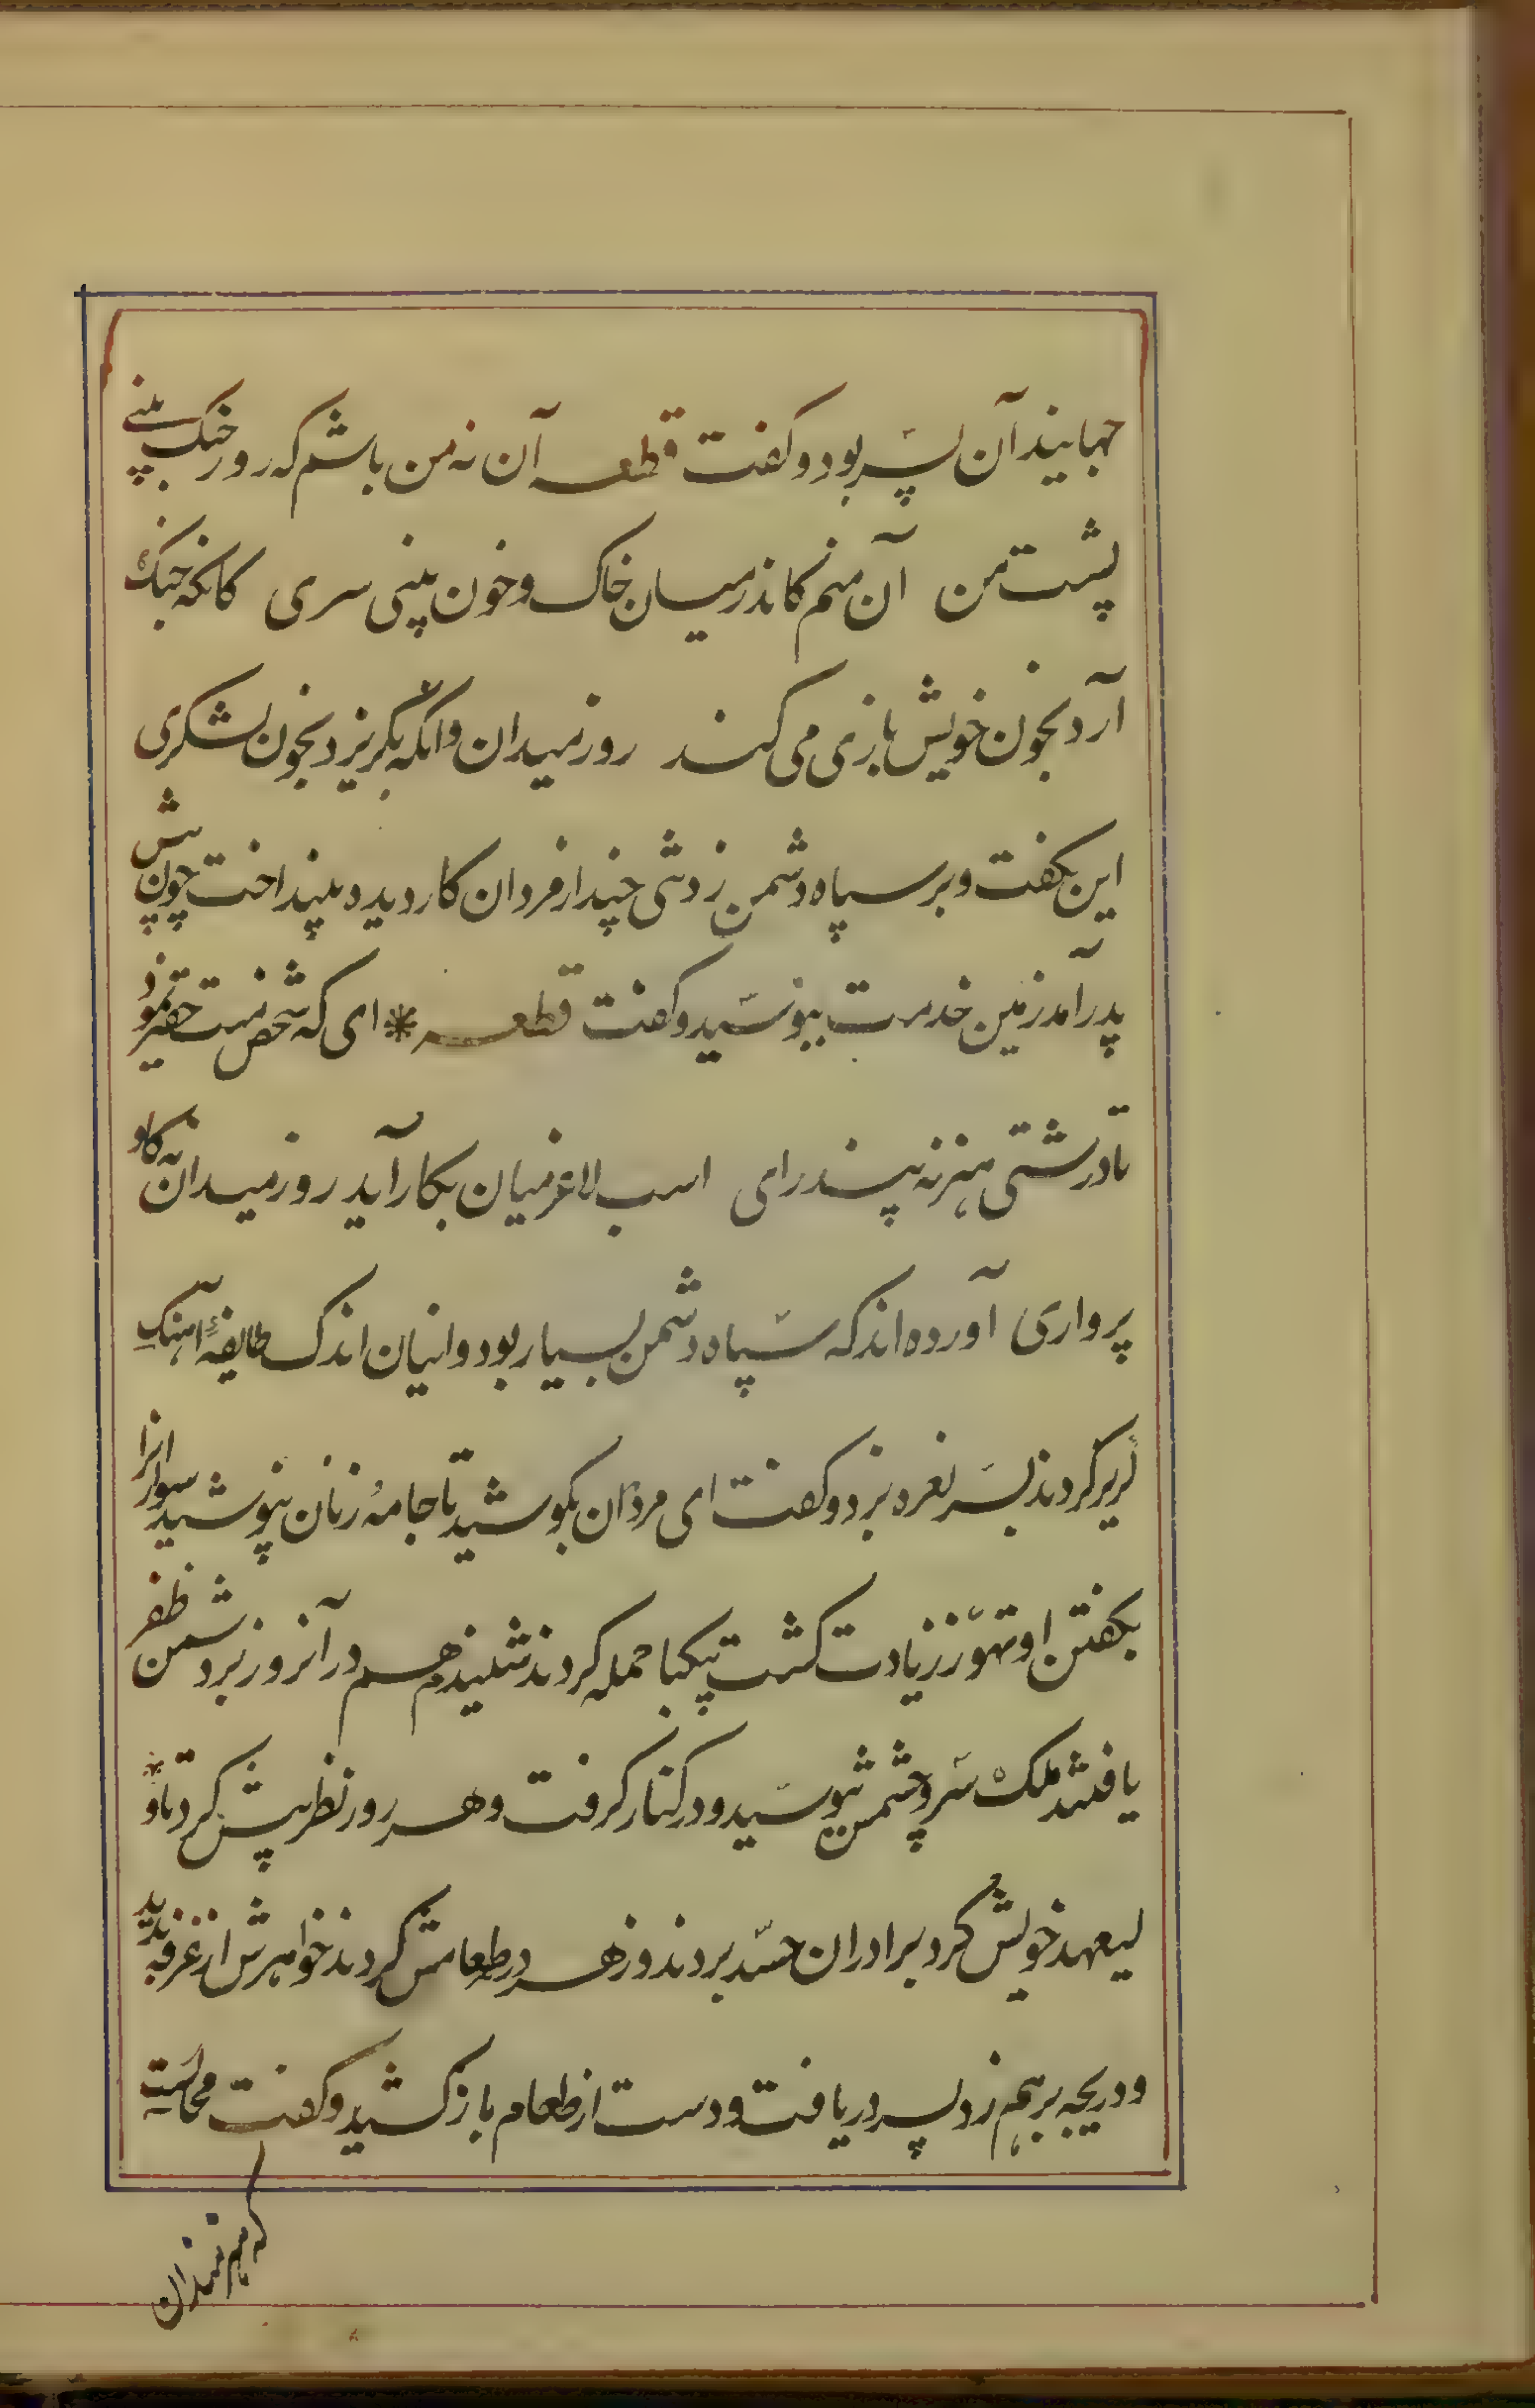 جهانید آن پسر بود و گفت قطعه آن نه من باشم که روز جنگ بینی
پشت من آن منم کاندر میان خاک و خون بینی سری کانکه جنگ
آرد بخون خویش بازی می کند روز میدان وانکه بگریزد بخون لشکری
این بگفت و بر سپاه دشمن زد تنی چند از مردان کار دیده بینداخت چون پیش
پدر آمد زمین خدمت ببوسید و گفت قطعه * ای که شخص منت حقیر نمود
تا درشتی هنر نه پنداری اسب لاغر میان بکار آید روز میدان نه گاو
پرواری آورده اند که سپاه دشمن بسیار بود و اینان اندک طایفهٔ آهنگ
گریز کردند پسر نعره بزد و گفت ای مردان بکوشید تا جامهٔ زنان نپوشید سوارانرا
بگفتن او تهوّر زیادت گشت بیکبار حمله کردند شنیدم هم در آنروز بر دشمن ظفر
یافتند ملک سر و چشمش ببوسید و در کنار گرفت و هر روز نظر بیش کرد تا و
لیعهد خویش کرد برادران حسد بردند و زهر در طعامش کردند خواهرش از غرفه بدید
و دریچه بر هم زد پسر دریافت و دست از طعام باز کشید و گفت محالست
که هنرمندان